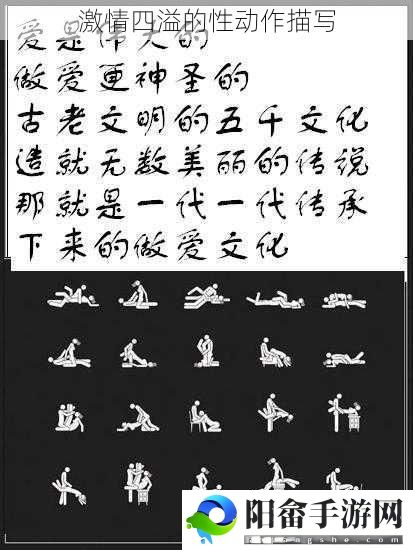 激情四溢的性动作描写
爱是伟大的
做爱更神圣的
古老文明的五千文化
造就无数美丽的传说
那就是一代一代传承
下来的做爱文化
阳畲手游网